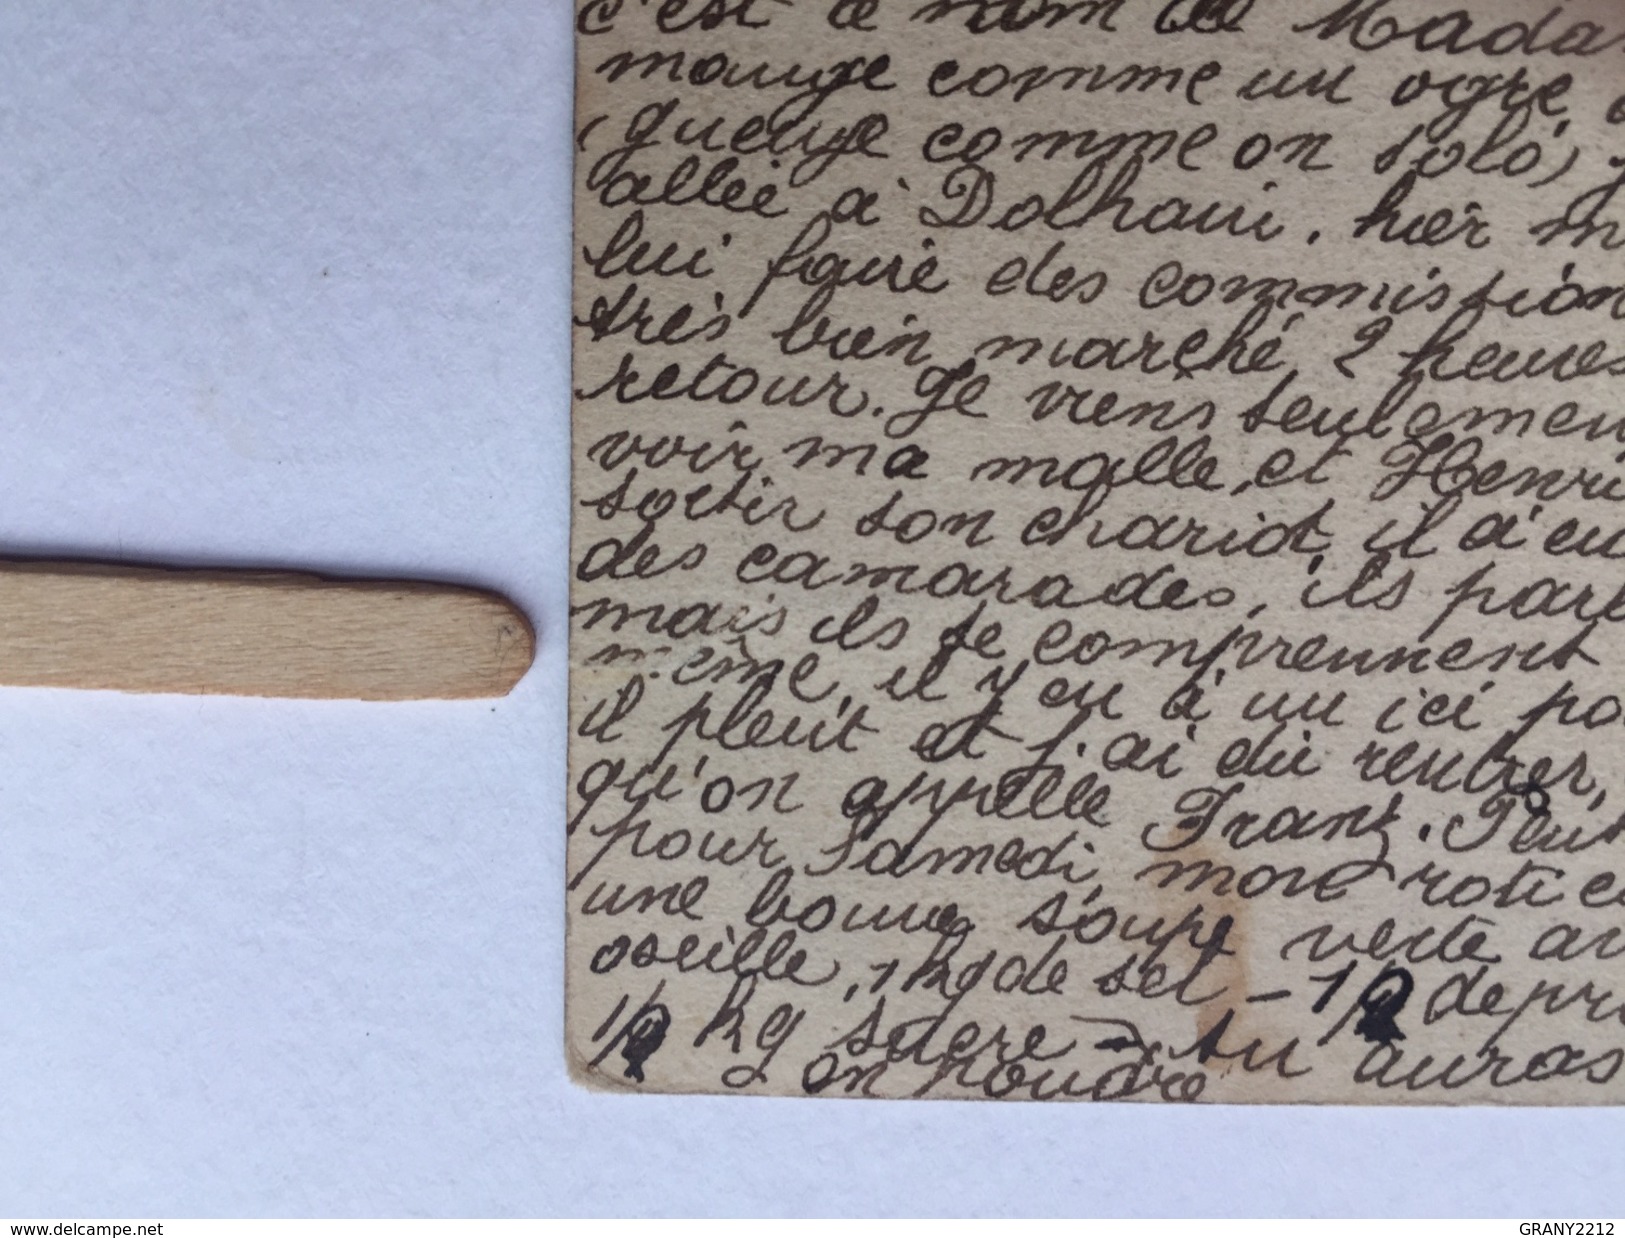 c'est le nom de Mada
mange comme un ogre,
(gueuge comme on solo)
allée à Dolhain. hier m
lui faire des commission
très bien marché, 2 heures
retour. Je viens seulemen
voir ma malle, et Henri
sortir son chariot, il a eu
des camarades, ils parl
mais ils se comprennent
même, il y en a un ici po
il pleut et j'ai dû rentrer,
qu'on appelle Franz. Peut
pour Samedi, mon roti c
une bonne soupe verte av
oseille, 1 kg de sel – 1/2 de pr
1/2 kg sucre – tu auras
en poudre
www.delcampe.net
GRANY2212